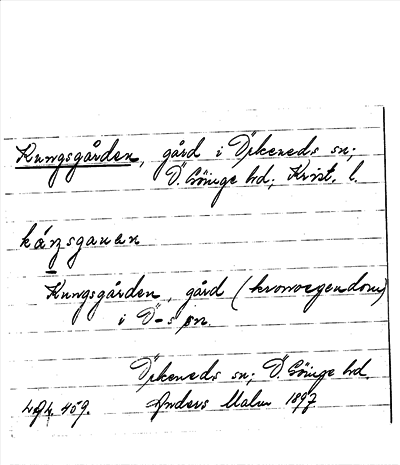 Kungsgården, gård i Örkeneds sn;
Ö. Göinge hd; Krist. l.
Kungsgården, gård (kronoegendom)
i Ö-s sn.
Örkeneds sn; Ö. Göinge hd.
Anders Malm 1897